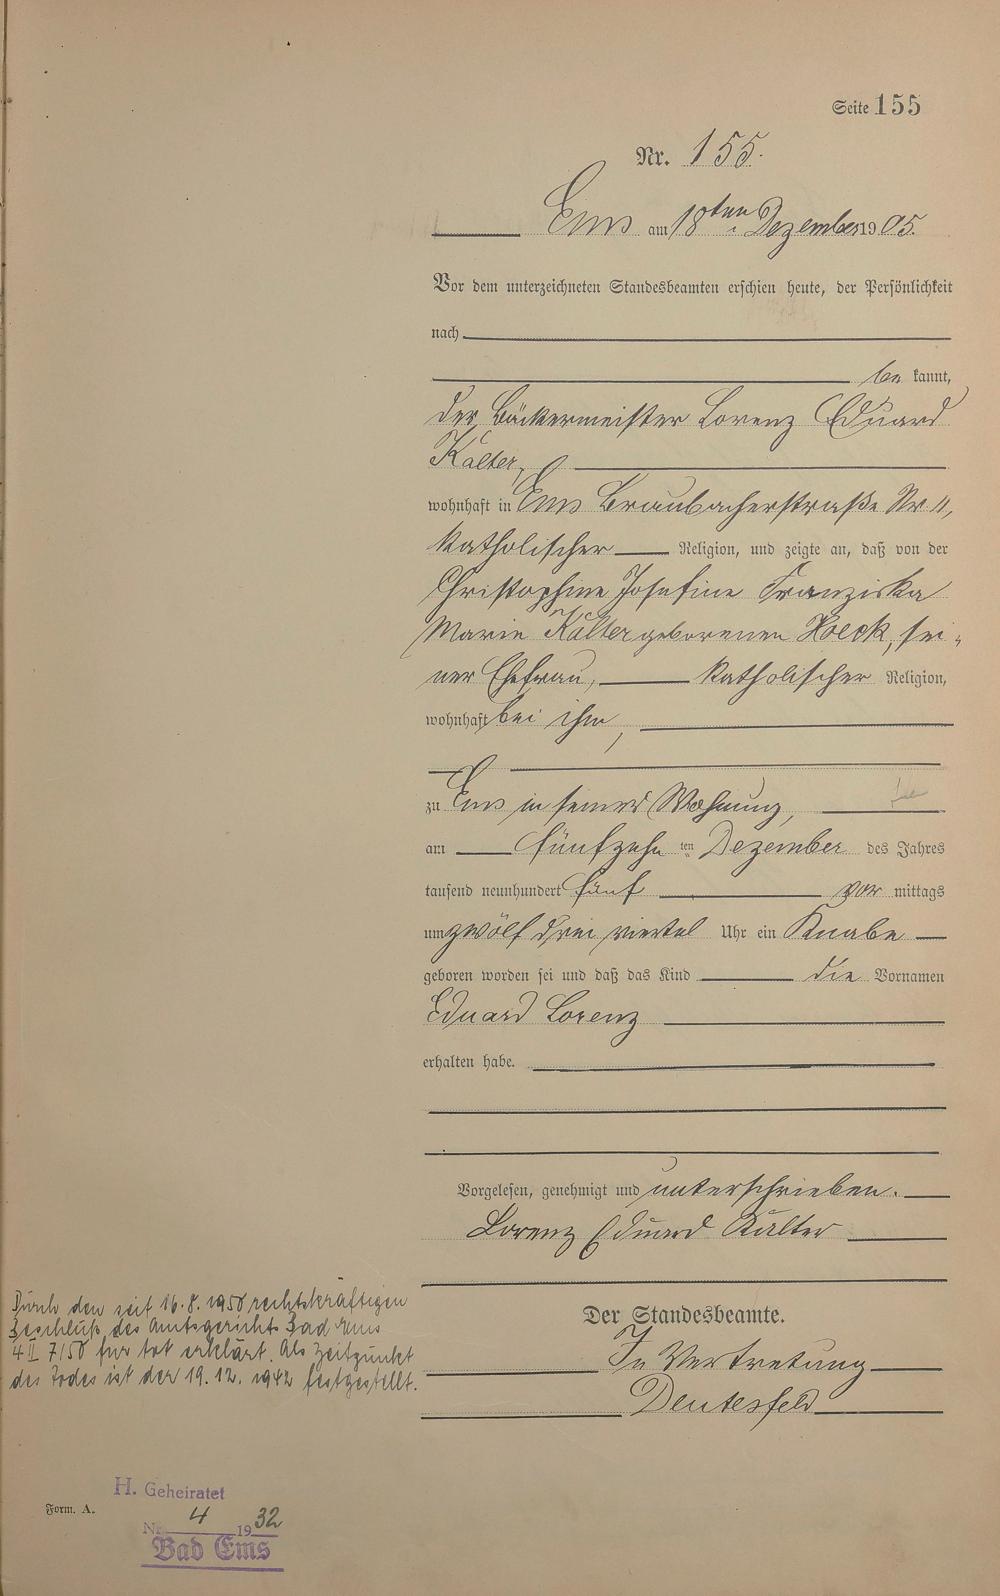 Seite 155
Nr. 155.
Ems am 18ten Dezember 1905.
Vor dem unterzeichneten Standesbeamten erschien heute, der Persönlichkeit
nach
be kannt,
der Bäckermeister Lorenz Eduard
Kalter,
wohnhaft in Ems Braubacherstraße Nr. 11,
katholischer Religion, und zeigte an, daß von der
Christophine Josefine Franziska
Marie Kalter geborenen Hoeck, sei-
ner Ehefrau, katholischer Religion,
wohnhaft bei ihm,
zu Ems in seiner Wohnung,
am fünfzehn ten Dezember des Jahres
tausend neunhundert fünf vor mittags
um zwölf drei viertel Uhr ein Knabe
geboren worden sei und daß das Kind die Vornamen
Eduard Lorenz
erhalten habe.
Vorgelesen, genehmigt und unterschrieben.
Lorenz Eduard Kalter
Der Standesbeamte.
In Vertretung
Deutesfeld
Durch den seit 16.8.1950 rechtskräftigen
Beschluß des Amtsgerichts Bad Ems
4 II 7/50 für tot erklärt. Als Zeitpunkt
des Todes ist der 19.12.1942 festgestellt.
H. Geheiratet
Form. A.
Nr. 4 1932
Bad Ems